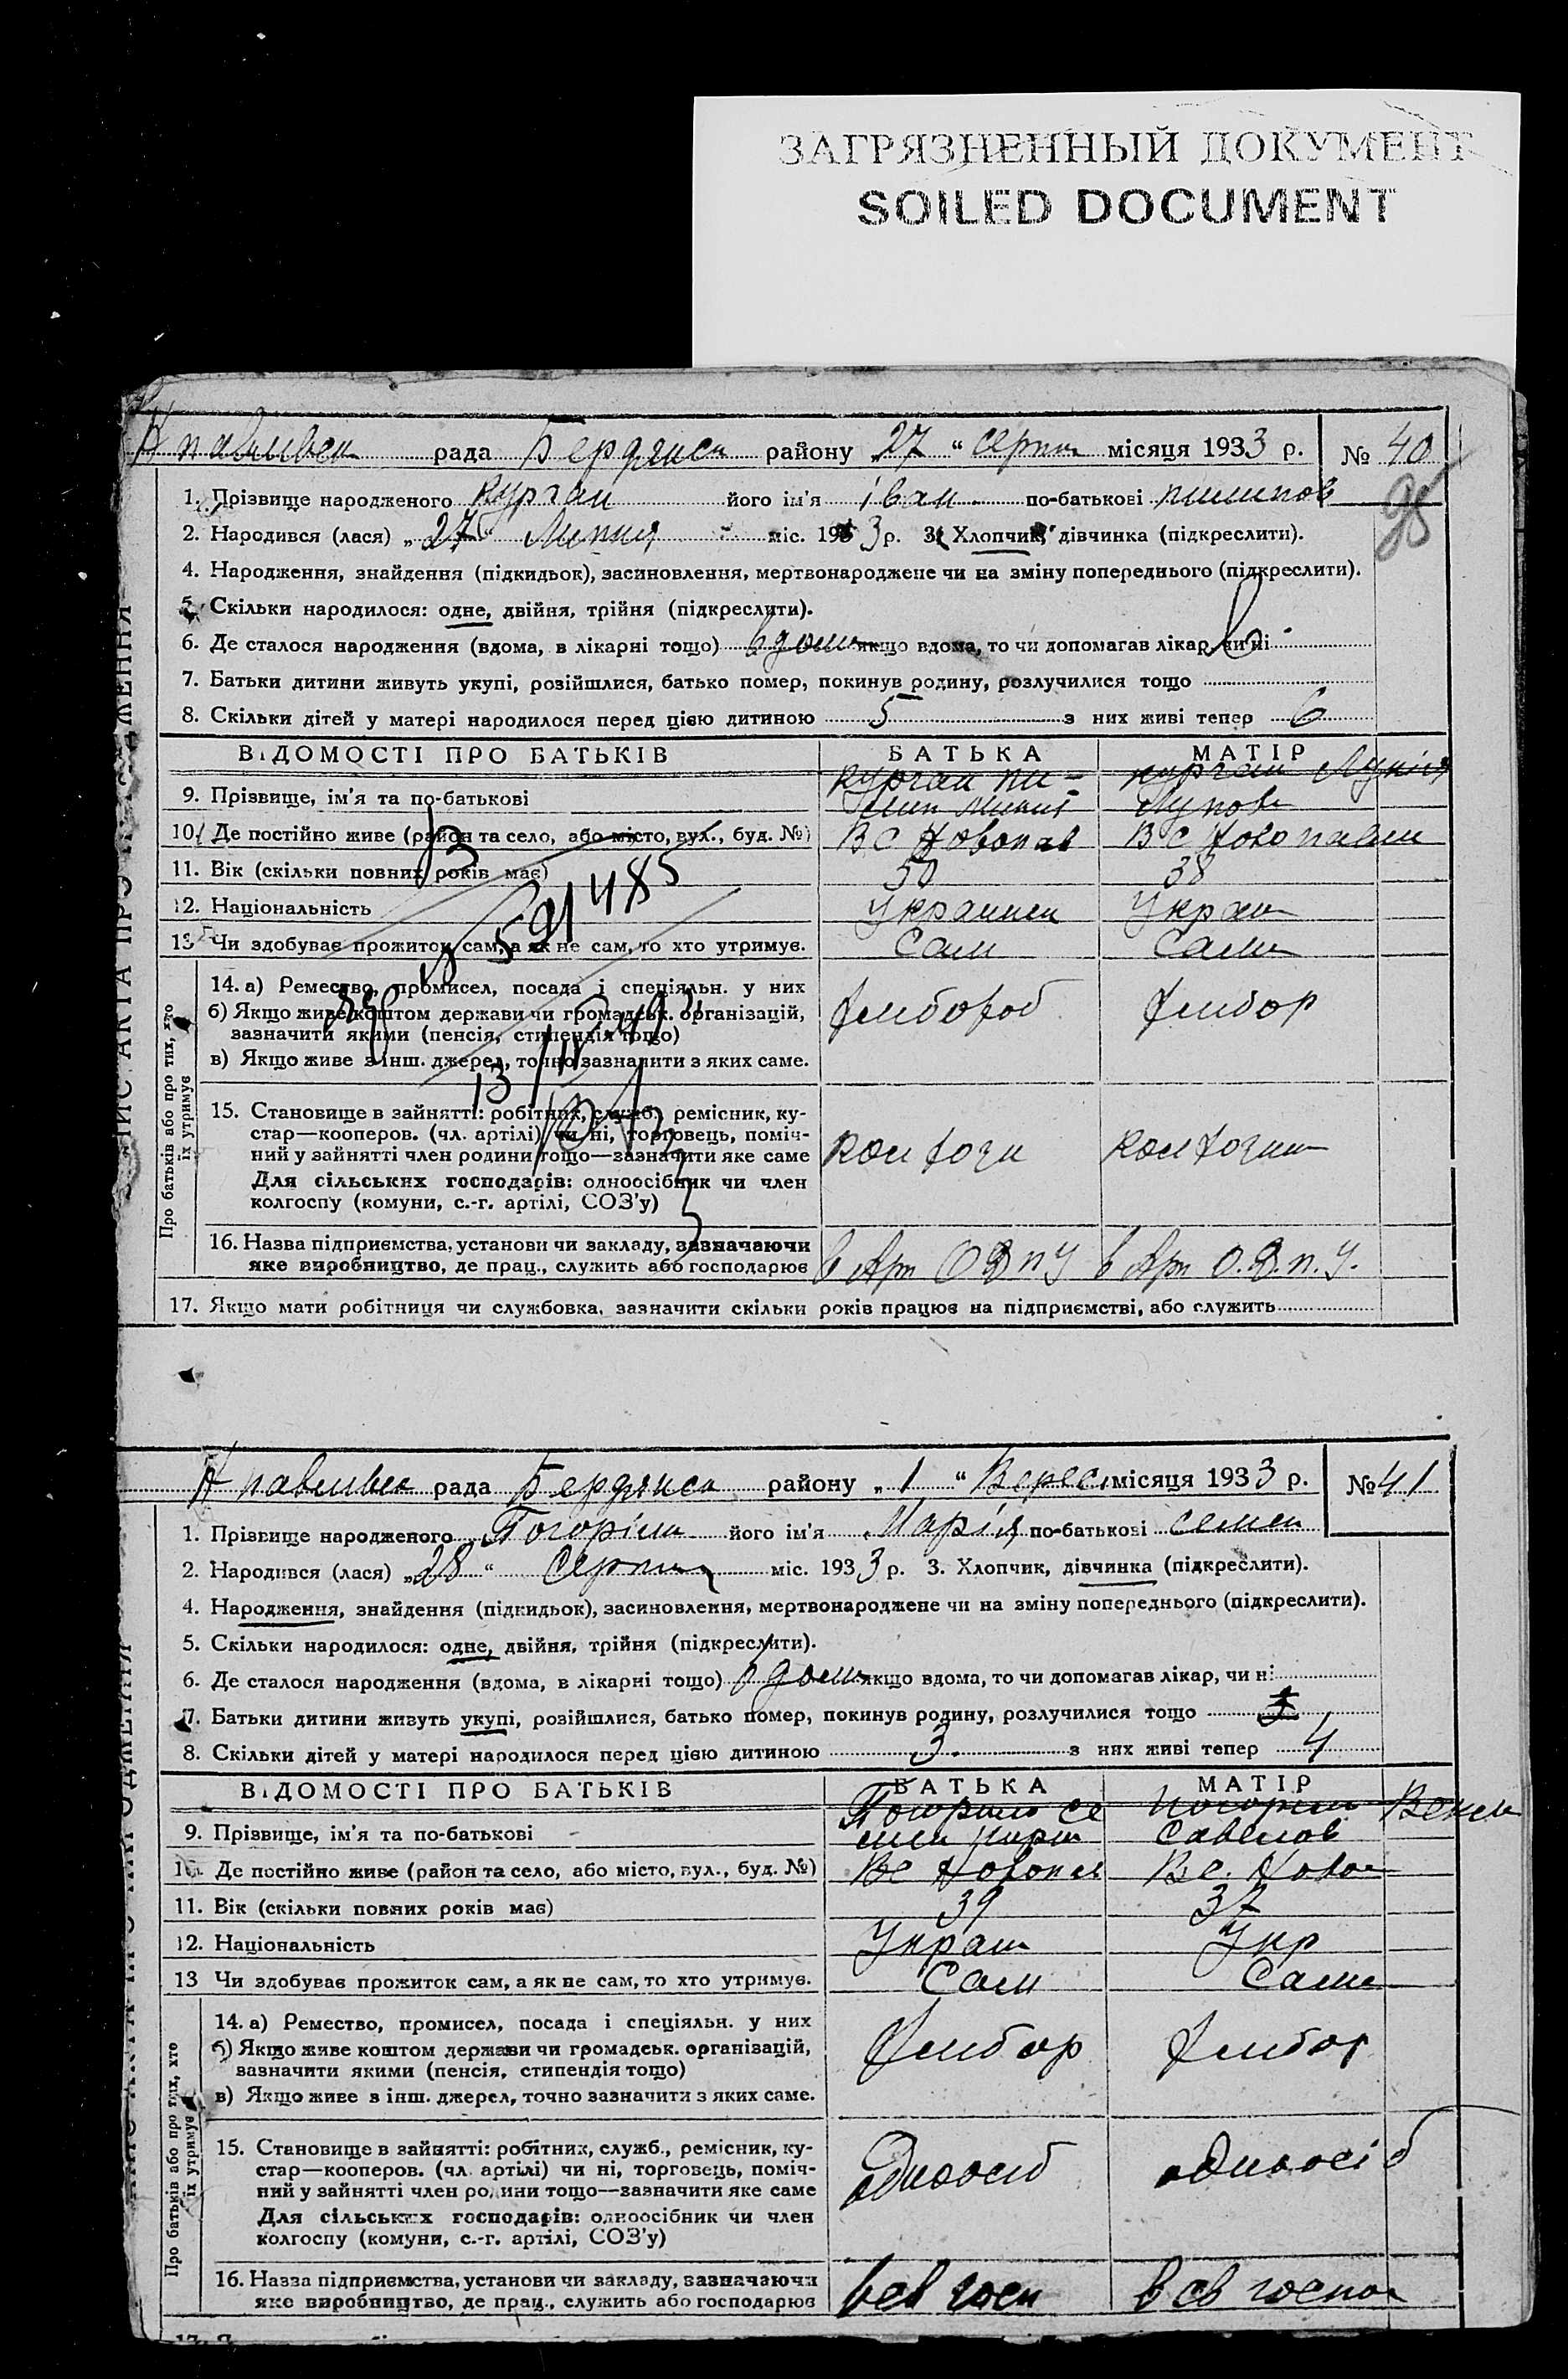 ЗАГРЯЗНЕННЫЙ ДОКУМЕНТ
SOILED DOCUMENT
рада Бердянськ району „27“ серпн місяця 1933 р. № 40
1. Прізвище народженого Курган його ім'я іван по-батькові пилипов
95
2. Народився (лася) „27“ Липня міс. 193 3 р. 3. Хлопчик, дівчинка (підкреслити).
4. Народження, знайдення (підкидьок), засиновлення, мертвонароджене чи на зміну попереднього (підкреслити).
5. Скільки народилося: одне, двійня, трійня (підкреслити).
6. Де сталося народження (вдома, в лікарні тощо) вдома якщо вдома, то чи допомагав лікар, чи ні
7. Батьки дитини живуть укупі, розійшлися, батько помер, покинув родину, розлучилися тощо
8. Скільки дітей у матері народилося перед цією дитиною 5 з них живі тепер 6
ВІДОМОСТІ ПРО БАТЬКІВ БАТЬКА МАТІР
Курган пи- курган Лукія
9. Прізвище, ім'я та по-батькові лип Лупов
10. Де постійно живе (район та село, або місто, вул., буд. №) В с Новопав В с Новопавли
11. Вік (скільки повних років має) 50 38
12. Національність Украинец Укра
13 Чи здобуває прожиток сам, а як не сам, то хто утримує. Сам Сама
Про батьків або про тих, хто їх утримує
14. а) Ремество, промисел, посада і спеціяльн. у них
б) Якщо живе коштом держави чи громадськ. організацій, Хлибороб Хлибор
зазначити якими (пенсія, стипендія тощо)
в) Якщо живе з інш. джерел, точно зазначити з яких саме.
15. Становище в зайнятті: робітник, служб., ремісник, ку-
стар—кооперов. (чл. артілі) чи ні, торговець, поміч-
ний у зайнятті член родини тощо—зазначити яке саме
Для сільських господарів: одноосібник чи член
колгоспу (комуни, с.-г. артілі, СОЗ'у)
16. Назва підприємства, установи чи закладу, зазначаючи
яке виробництво, де прац., служить або господарює в Арт О Д П У в Арт О.Д.П.У.
17. Якщо мати робітниця чи службовка, зазначити скільки років працює на підприємстві, або служить
рада Бердянськ району „1“ Верес місяця 1933 р. № 41
1. Прізвище народженого Погоріл його ім'я Марія по-батькові семен
2. Народився (лася) „28“ Серпня міс. 193 3 р. 3. Хлопчик, дівчинка (підкреслити).
4. Народження, знайдення (підкидьок), засиновлення, мертвонароджене чи на зміну попереднього (підкреслити).
5. Скільки народилося: одне, двійня, трійня (підкреслити).
6. Де сталося народження (вдома, в лікарні тощо) вдома якщо вдома, то чи допомагав лікар, чи ні
7. Батьки дитини живуть укупі, розійшлися, батько помер, покинув родину, розлучилися тощо
8. Скільки дітей у матері народилося перед цією дитиною 3 з них живі тепер 4
ВІДОМОСТІ ПРО БАТЬКІВ БАТЬКА МАТІР
9. Прізвище, ім'я та по-батькові савелов
10. Де постійно живе (район та село, або місто, вул., буд. №) В с Новопав В с. Ново
11. Вік (скільки повних років має) 39 37
12. Національність Украин Укр
13 Чи здобуває прожиток сам, а як не сам, то хто утримує. Сам Сама
Про батьків або про тих, хто їх утримує
14. а) Ремество, промисел, посада і спеціяльн. у них
б) Якщо живе коштом держави чи громадськ. організацій, Хлибор Хлибор
зазначити якими (пенсія, стипендія тощо)
в) Якщо живе з інш. джерел, точно зазначити з яких саме.
15. Становище в зайнятті: робітник, служб., ремісник, ку-
стар—кооперов. (чл. артілі) чи ні, торговець, поміч- одноосіб одноосіб
ний у зайнятті член родини тощо—зазначити яке саме
Для сільських господарів: одноосібник чи член
колгоспу (комуни, с.-г. артілі, СОЗ'у)
16. Назва підприємства, установи чи закладу, зазначаючи в св госп в св госпо
яке виробництво, де прац., служить або господарює